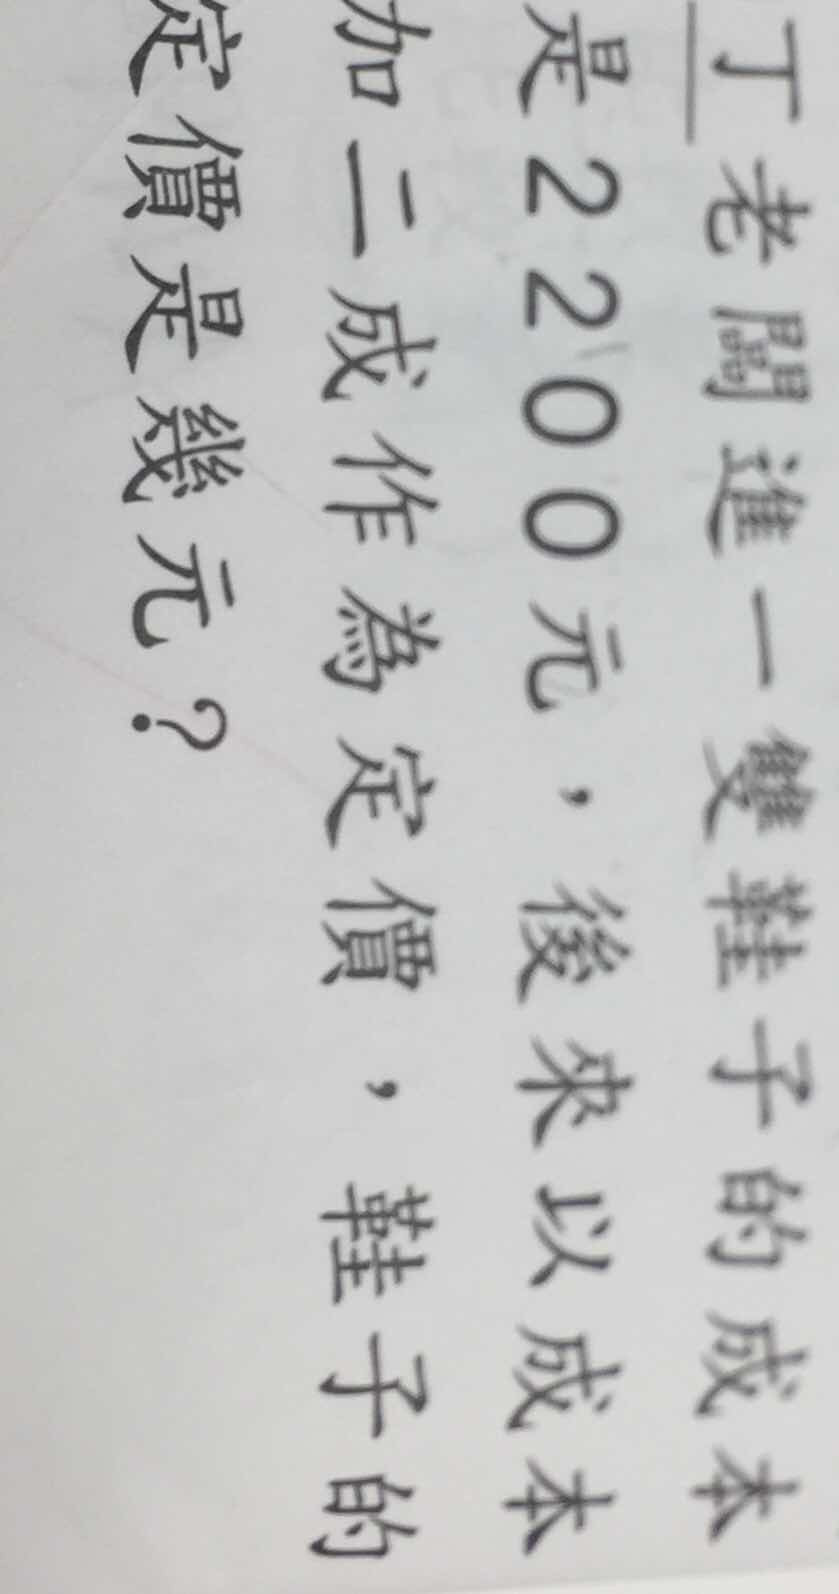 丁老闆進一雙鞋子的成本
是2200元，後來以成本
加二成作為定價，鞋子的
定價是幾元？